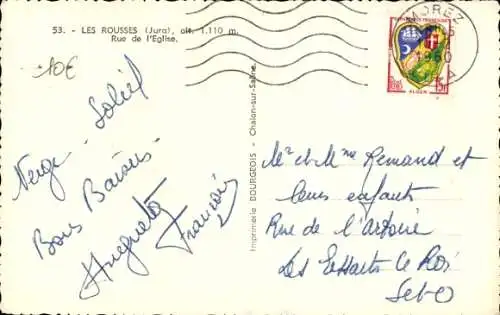 53. - LES ROUSSES (Jura), alt. 1.110 m.
Rue de l'Eglise.
10€
Soleil
Neige
Bons Baisers
Huguette
François
Imprimerie DOURGEOIS - Chalon-sur-Saône.
ALGER
15F
Mr et Mme Remand et
leurs enfants
Rue de l'
Les Essarts le Roi
S et O